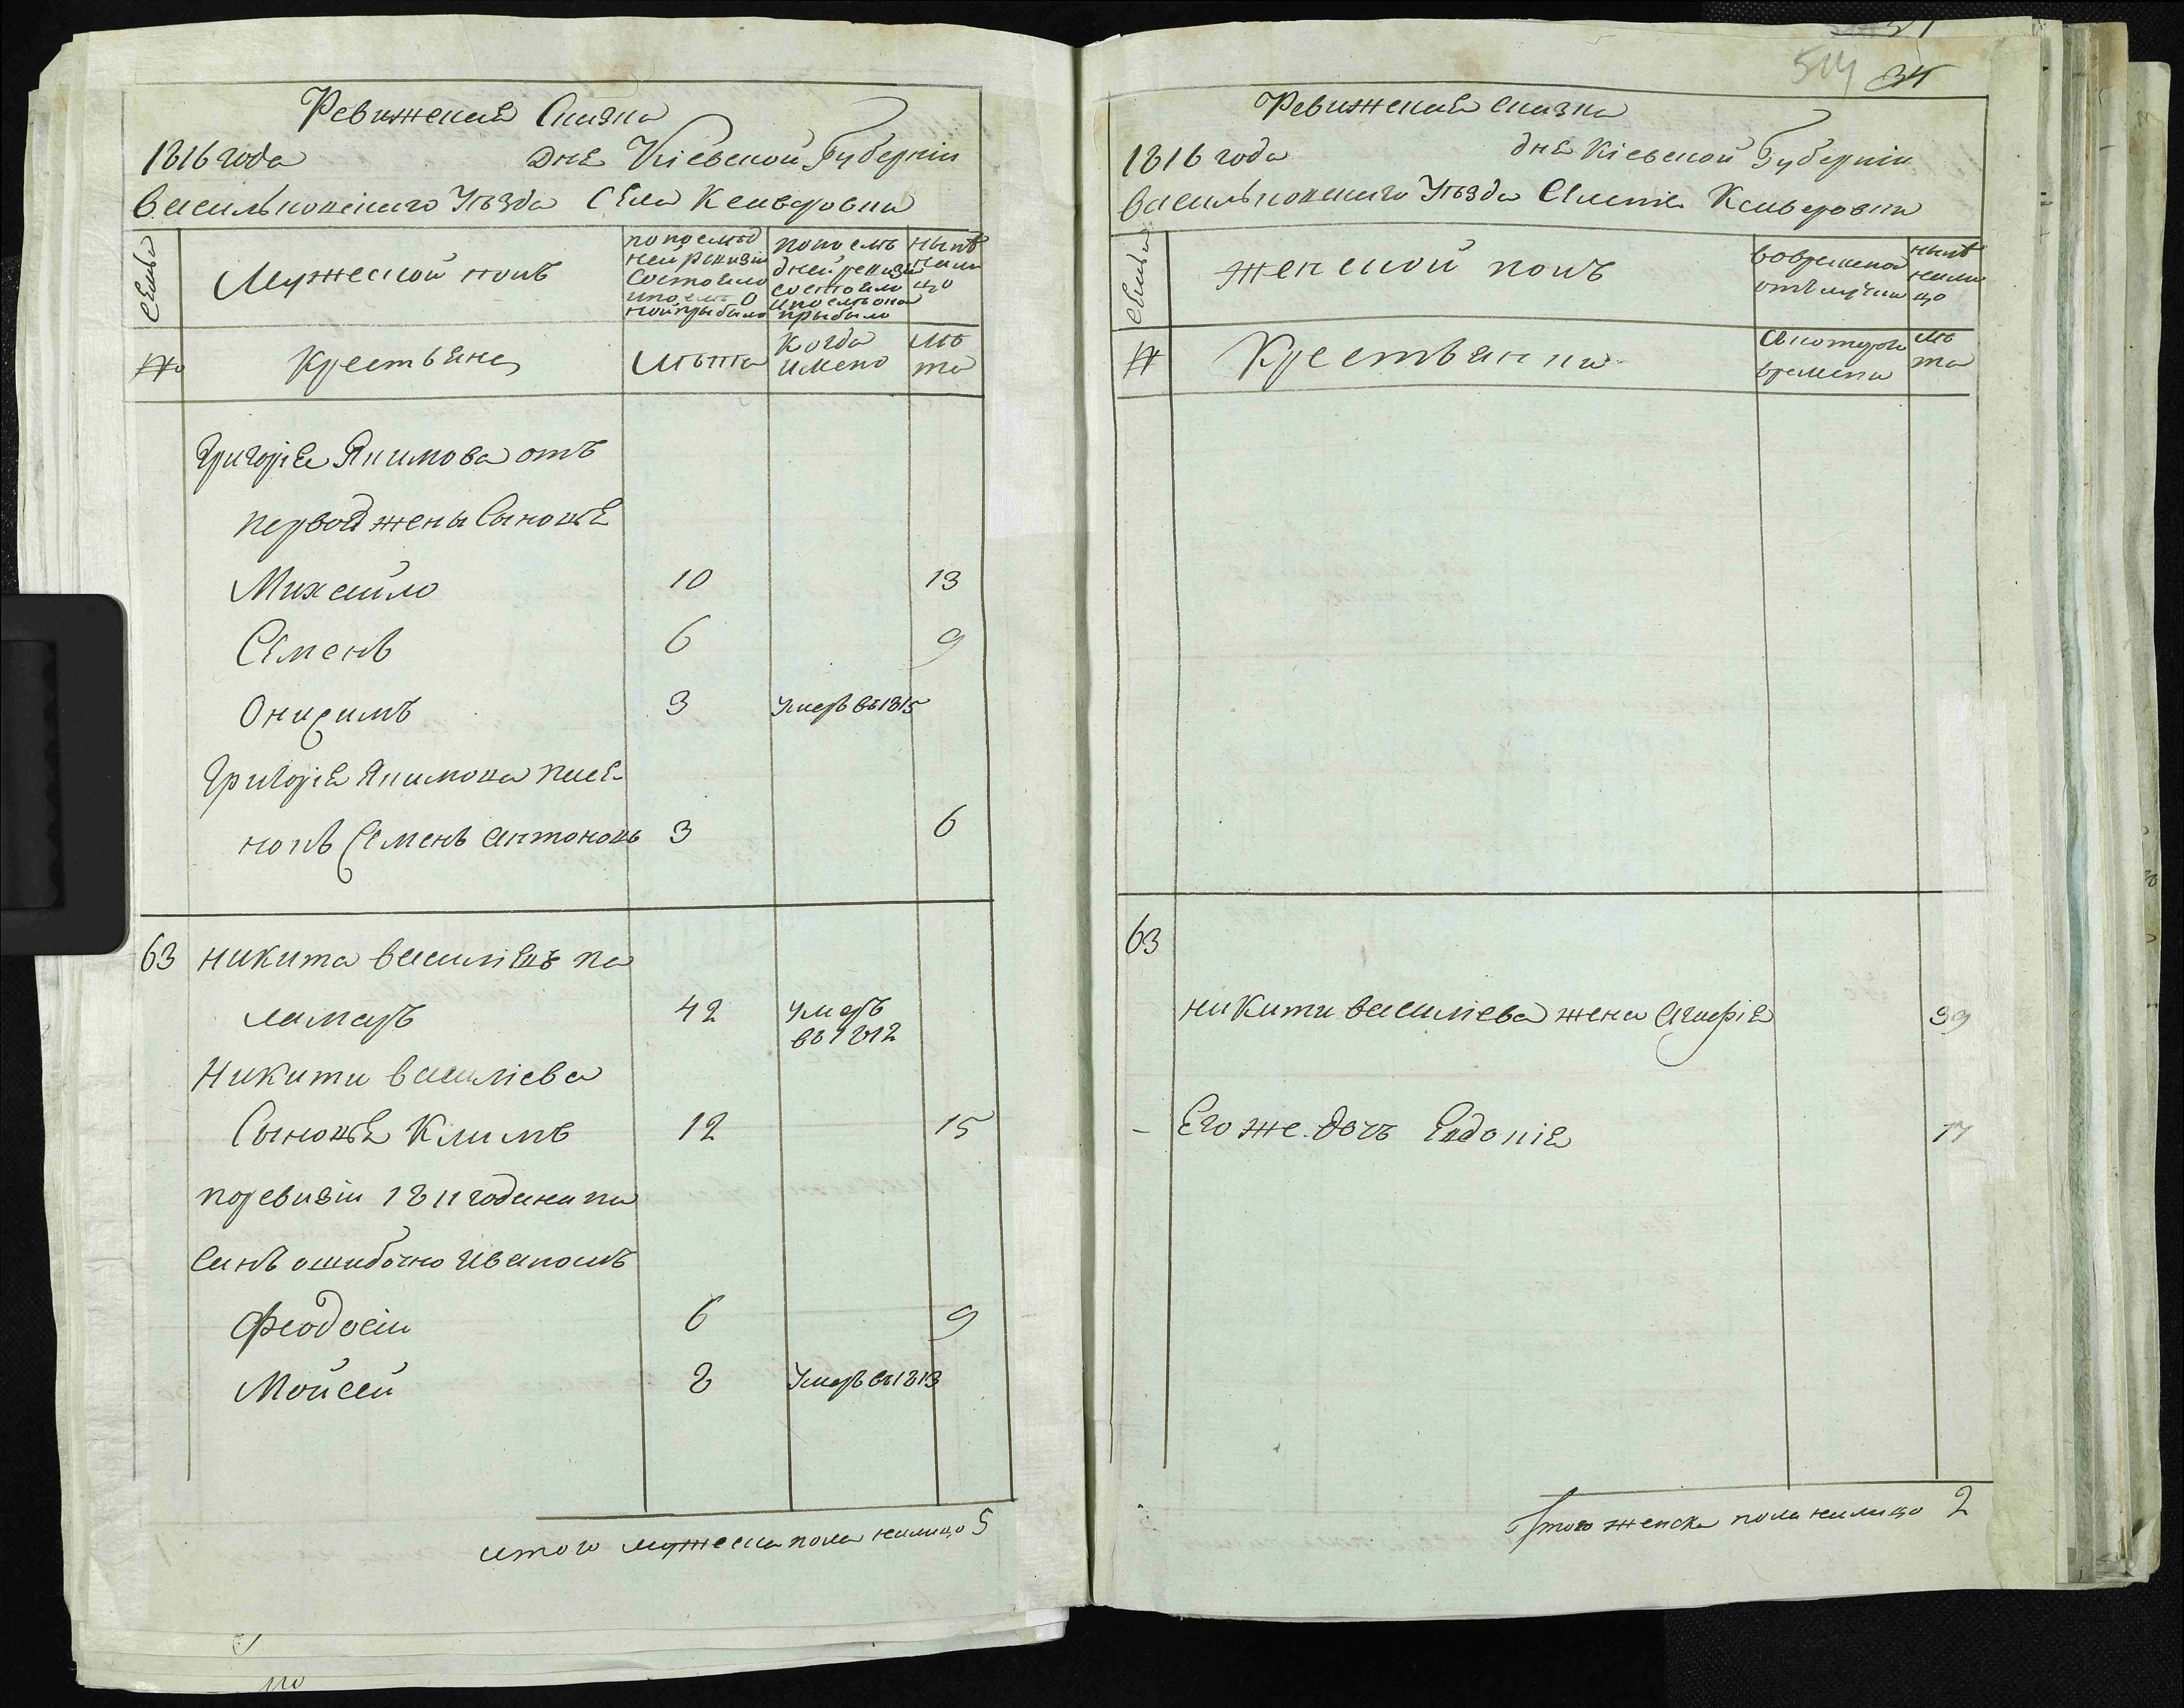 Ревижская Сказка
1816 года дня Кіевской Губерніи
Васильковского Уѣзда Села Ксаверовки
Семьи
Мужеской полъ
по послѣд
ней ревизіи
состояло
и после о
ной прибыло
по послѣ
дней ревизіи
состояло
и послѣ оной
прибыло
нынѣ
нали
цо
№
Крестьяне
Лѣта
Когда
имено
Лѣ
та
Григорія Якимова отъ
первой жены Сыновья
Михайло 10 13
Семенъ 6 9
Онисимъ 3 Умеръ въ 1815
Григорія Якимова племя
никъ Семенъ Антоновъ 3 6
63 Никита Василіевъ па
ламаръ 42 умеръ
въ 1812
Никити Василіева
Сыновья Климъ 12 15
по ревизіи 1811 года напи
санъ ошибочно Иваномъ
Феодосій 6 9
Мойсей 2 Умеръ въ 1813
итого мужеска пола налицо 5
34
Ревижская сказка
1816 года дня Кіевской Губерніи
Васильковского Уѣзда Ксаверовки
Семьи
женской полъ
во временой
отълучки
нынѣ
нали
цо
№
Крестьянки
С которого
времени
Лѣ
та
63
Никити Василіева жена Агафія 39
- Его же дочъ Евдокія 17
Итого женска пола налицо 2